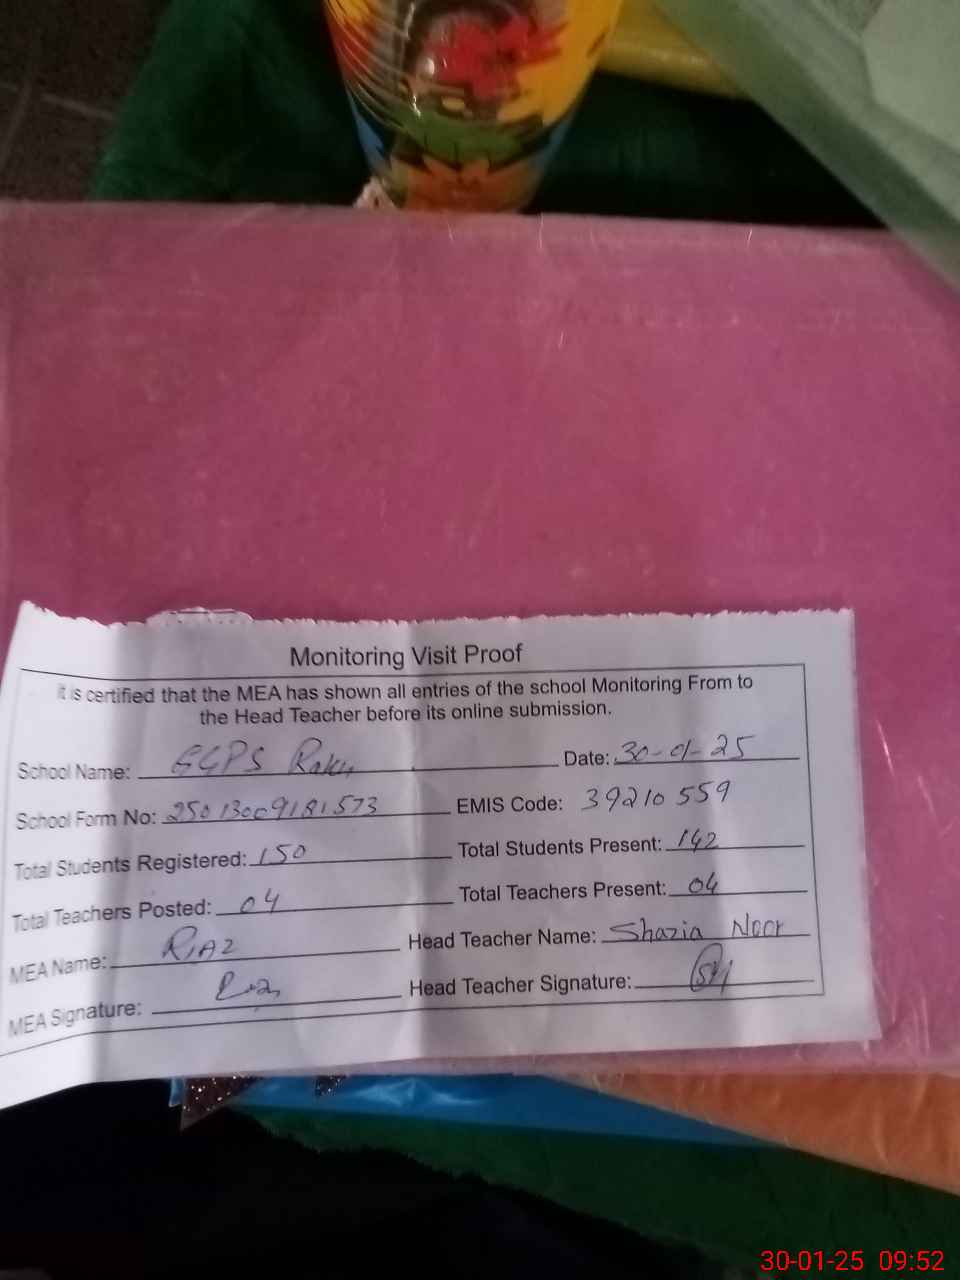 Monitoring Visit Proof
It is certified that the MEA has shown all entries of the school Monitoring From to
the Head Teacher before its online submission.
School Name: GGPS Date: 30-01-25
School Form No: 25013009181573 EMIS Code: 39210559
Total Students Registered: 150 Total Students Present: 142
Total Teachers Posted: 04 Total Teachers Present: 04
MEA Name: RIAZ Head Teacher Name: Shazia Noor
MEA Signature: Head Teacher Signature:
30-01-25 09:52